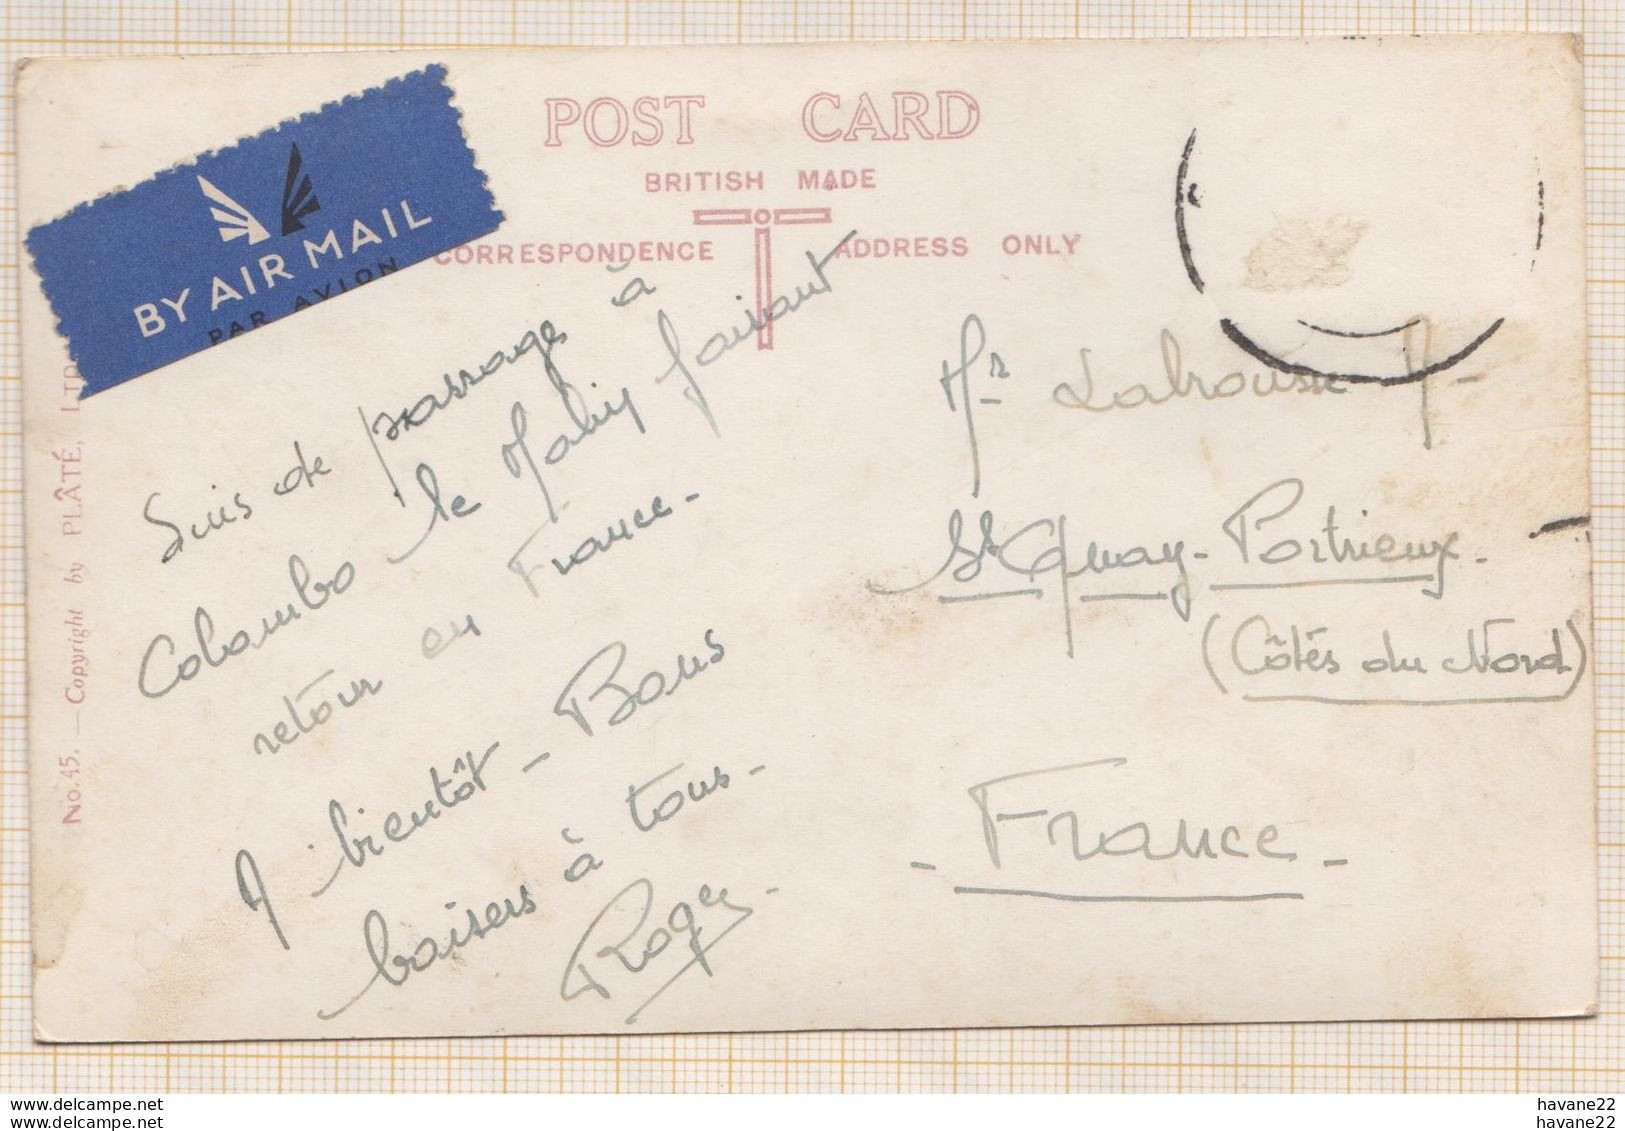 POST CARD
BRITISH MADE
CORRESPONDENCE
ADDRESS ONLY
BY AIR MAIL
PAR AVION
No. 45. — Copyright by PLÂTÉ, LTD
Suis de passage à
Colombo le Mahy faisant
retour en France -
A bientôt - Bons
baisers à tous -
Roger -
Mr Labrousse
St Quay - Portrieux -
(Côtés du Nord)
- France -
www.delcampe.net
havane22
www.delcampe.net
havane22